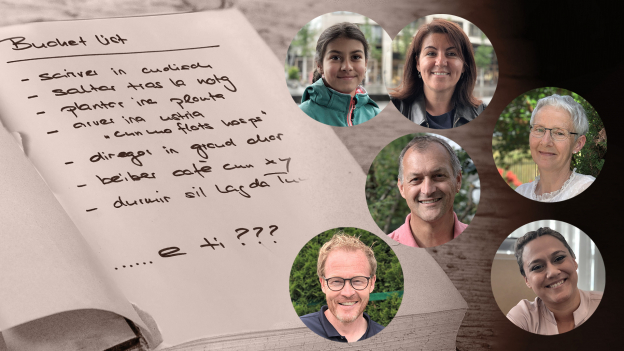 Bucket list
- scriver in cudisch
- saltar tras la notg
- plantar ina plonta
- arver ina ustria
"cun mo flots haps"
- diregor in grond chor
- beiber cafe cun xy
- durmir sil Lag da
......e ti ???